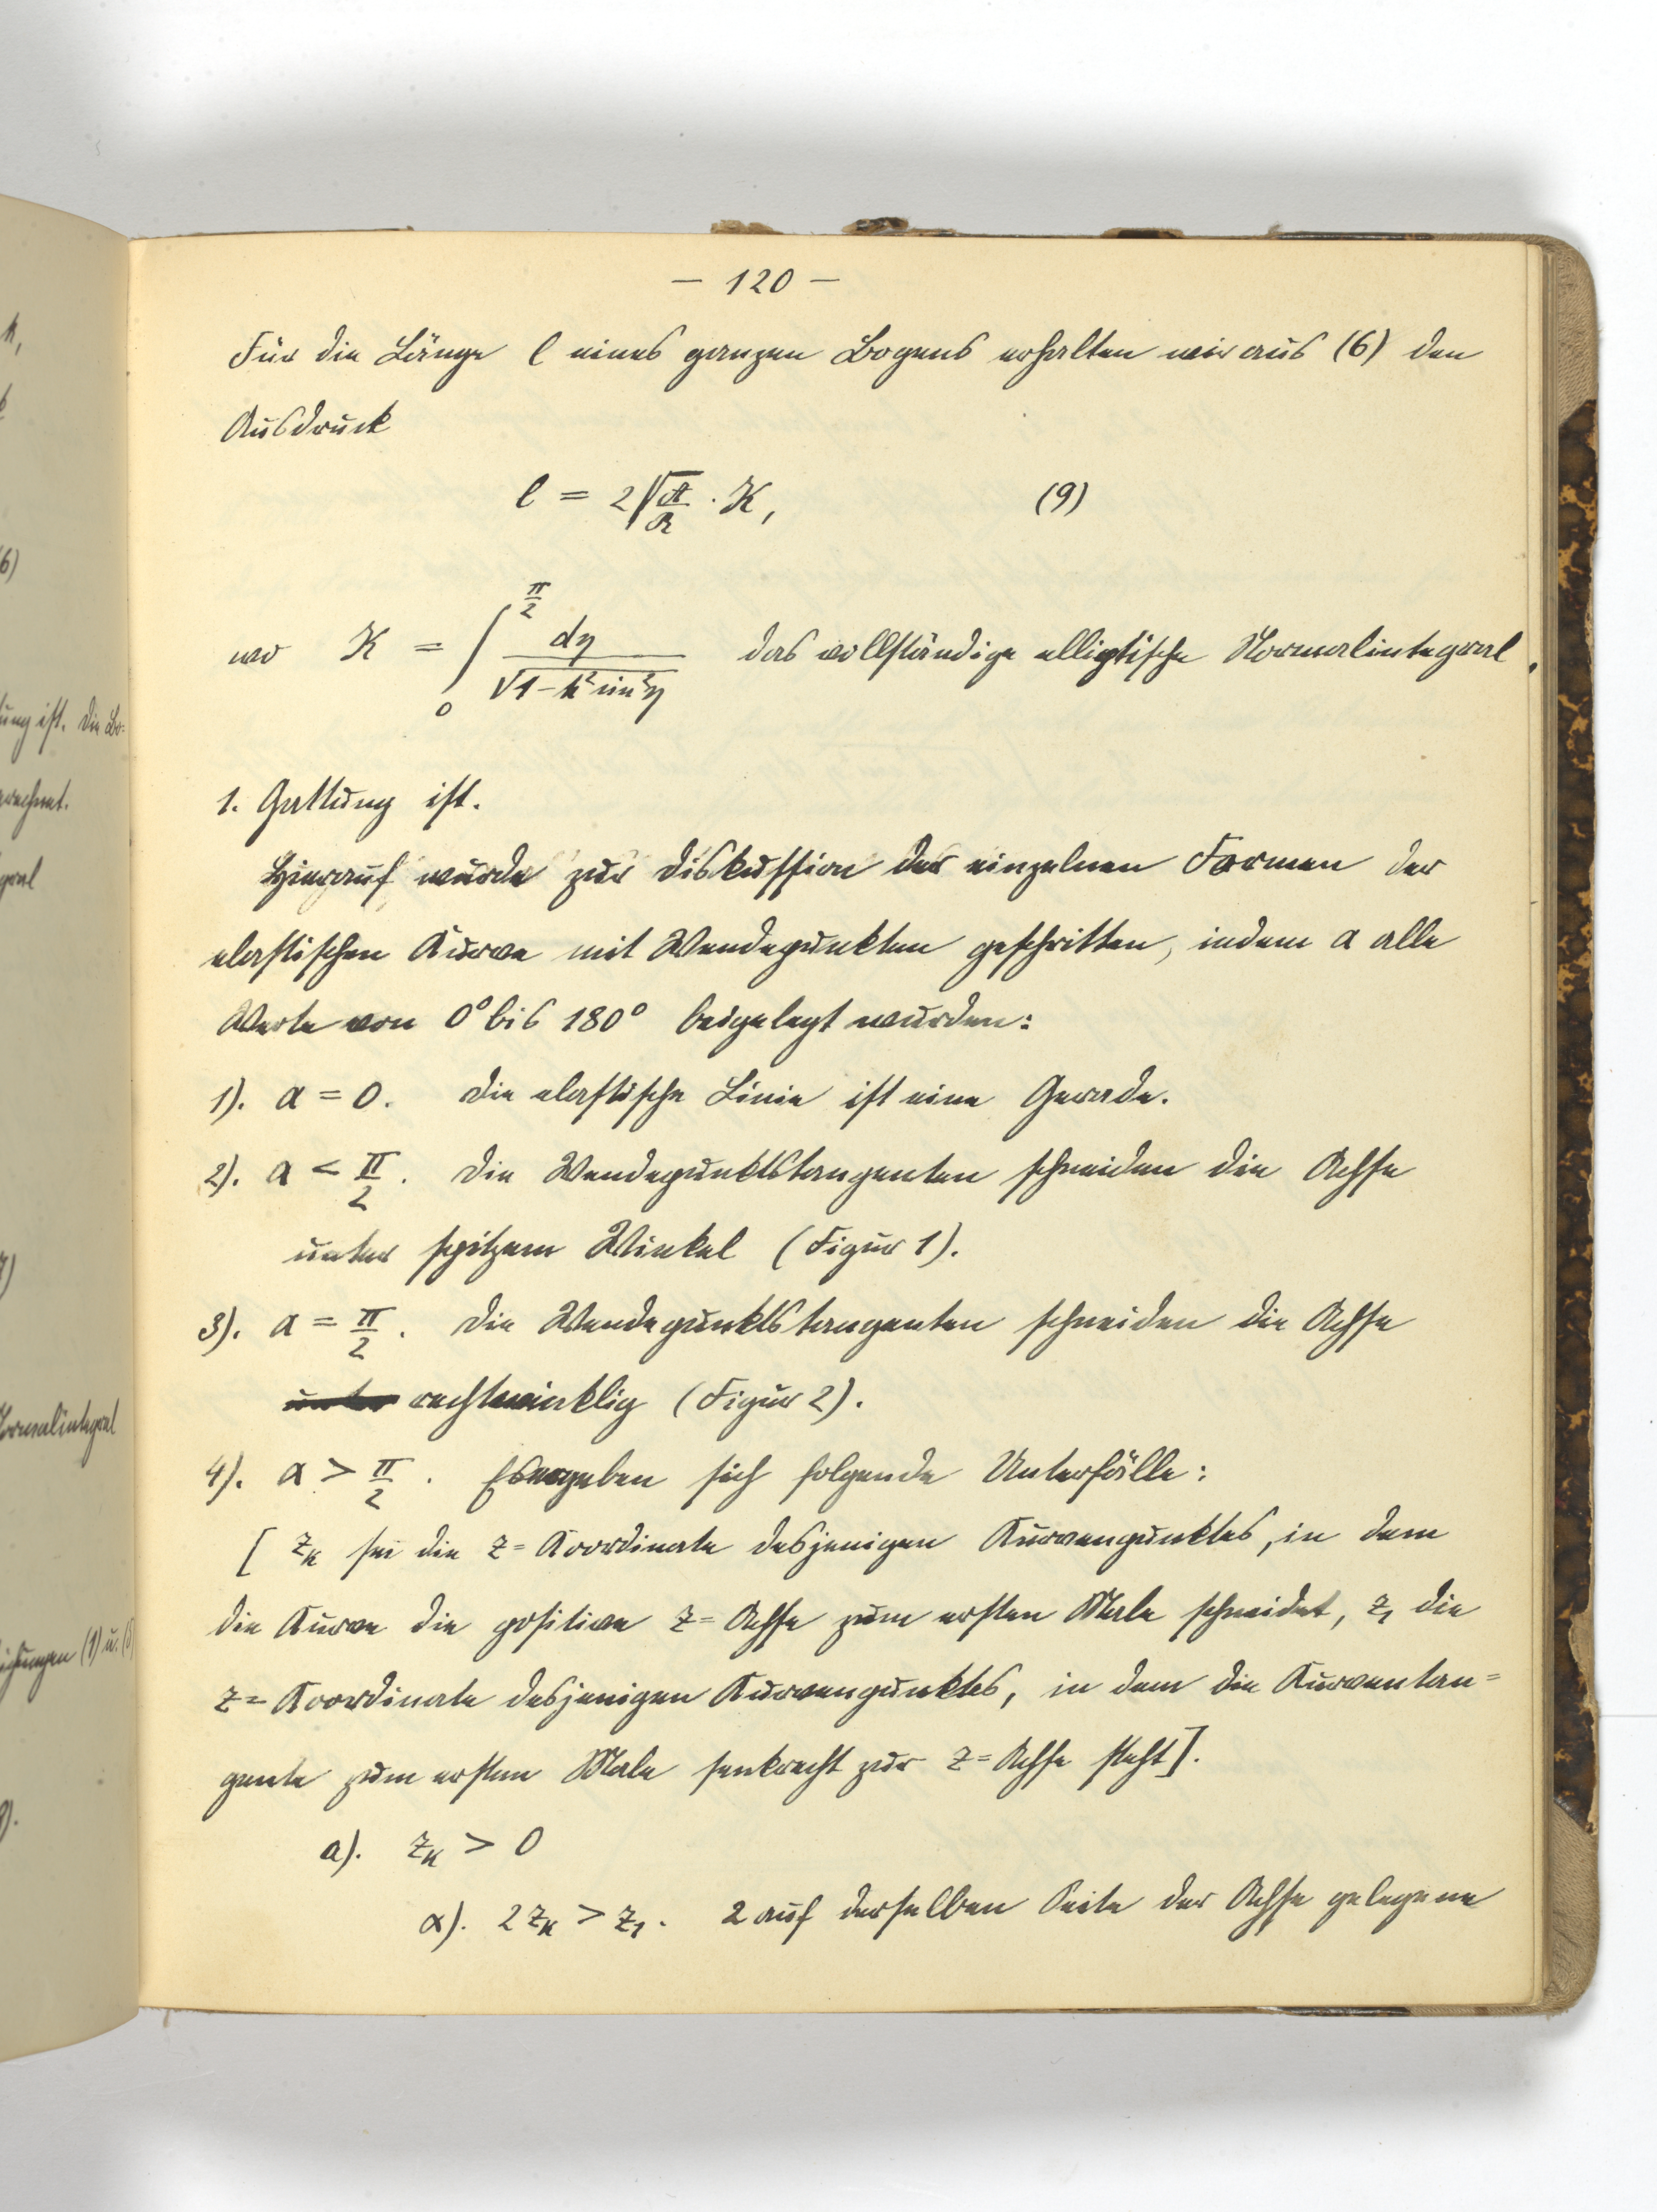 — 120 —
Für die Länge l eines ganzen Bogens erhalten wir aus (6) den
Ausdruck
l = 2 √(A/R) · K, (9)
wo K = ∫₀^(π/2) dη / √(1 - k² sin² η) das vollständige elliptische Normalintegral
1. Gattung ist.
Hierauf wurde zur Diskussion der einzelnen Formen der
elastischen Kurve mit Wendepunkten geschritten, indem α alle
Werte von 0° bis 180° beigelegt wurden:
1). α = 0. Die elastische Linie ist eine Gerade.
2). α < π/2. Die Wendepunktstangenten schneiden die Achse
unter spitzem Winkel (Figur 1).
3). α = π/2. Die Wendepunktstangenten schneiden die Achse
unter rechtwinklig (Figur 2).
4). α > π/2. Es ergeben sich folgende Unterfälle:
[ z_k sei die z=Koordinate desjenigen Kurvenpunktes, in dem
die Kurve die positive z=Achse zum ersten Male schneidet, z₁ die
z=Koordinate desjenigen Kurvenpunktes, in dem die Kurventan=
gente zum ersten Male senkrecht zur z=Achse steht].
a). z_k > 0
α). 2 z_k > z₁. 2 auf derselben Seite der Achse gelegene
k,
6)
ung ist. Die Bo=
rechnet.
gral
7)
Normalintegral
ichungen (1) u. (8)
8).